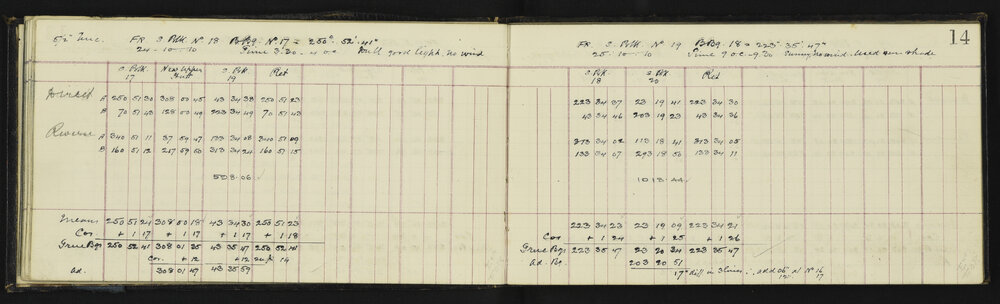 FR S. Pblk. No 18 BkBg. No 17 = 250° 52' 41"
24-10-10 Time 3.30 - 4 o.c Dull good light. no wind
S. Pblk 17 New Upper Hutt S. Pblk 19 Ret
Direct A 250 51 30 308 00 45 43 34 38 250 51 23
B 70 51 43 128 00 49 223 34 49 70 51 43
Reverse
A 340 51 11 37 59 47 133 34 08 340 51 09
B 160 51 12 217 59 50 313 34 24 160 51 15
508.06
Means 250 51 24 308 00 18 43 34 30 250 51 23
Cor + 1 17 + 1 17 + 1 17 + 1 18
True Bgs 250 52 41 308 01 35 43 35 47 250 52 41
Cor. + 12 + 12 14
ad. 308 01 47 43 35 59
14
FR S. Pblk No 19 BkBg. 18 = 223° 35' 47"
25-10-10 Time 9 o.c - 9.30 Sunny no wind. Used sun shade
S Pblk 18 S. Pblk 20 Ret
223 34 37 23 19 41 223 34 30
43 34 46 203 19 23 43 34 36
313 34 02 113 18 41 313 34 05
133 34 07 293 18 50 133 34 11
1013.44
223 34 23 23 19 09 223 34 21
Cor + 1 24 + 1 25 + 1 26
True Bgs 223 35 47 23 20 34 223 35 47
Ad. Bs 203 20 51
17" diff in 3 lines ∴ add 06 at No 16
17